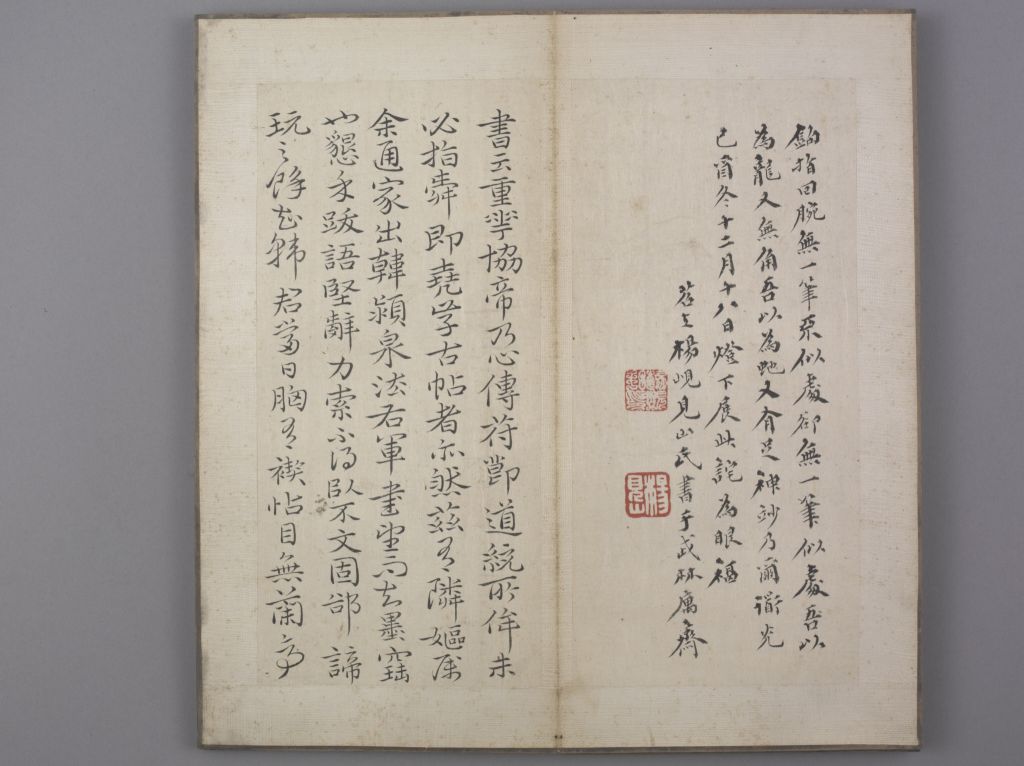 鉤指回腕無一筆不似處卻無一筆似處吾以
為龍又無角吾以為虵又有足神妙乃爾衢光
己酉冬十二月十八日燈下展此詫為眼福
苕上楊峴見山氏書于武林寓齋
楊峴
書云重華協帝乃心傳符節道統所侔未
必指舜即堯学古帖者亦然茲有隣嫗屬
余通家出韓潁泉法右軍書望而知墨窟
也懇永跋語堅辭力索不得臥不文固鄙諦
玩之餘知韓君當日胸有禊帖目無蘭亭